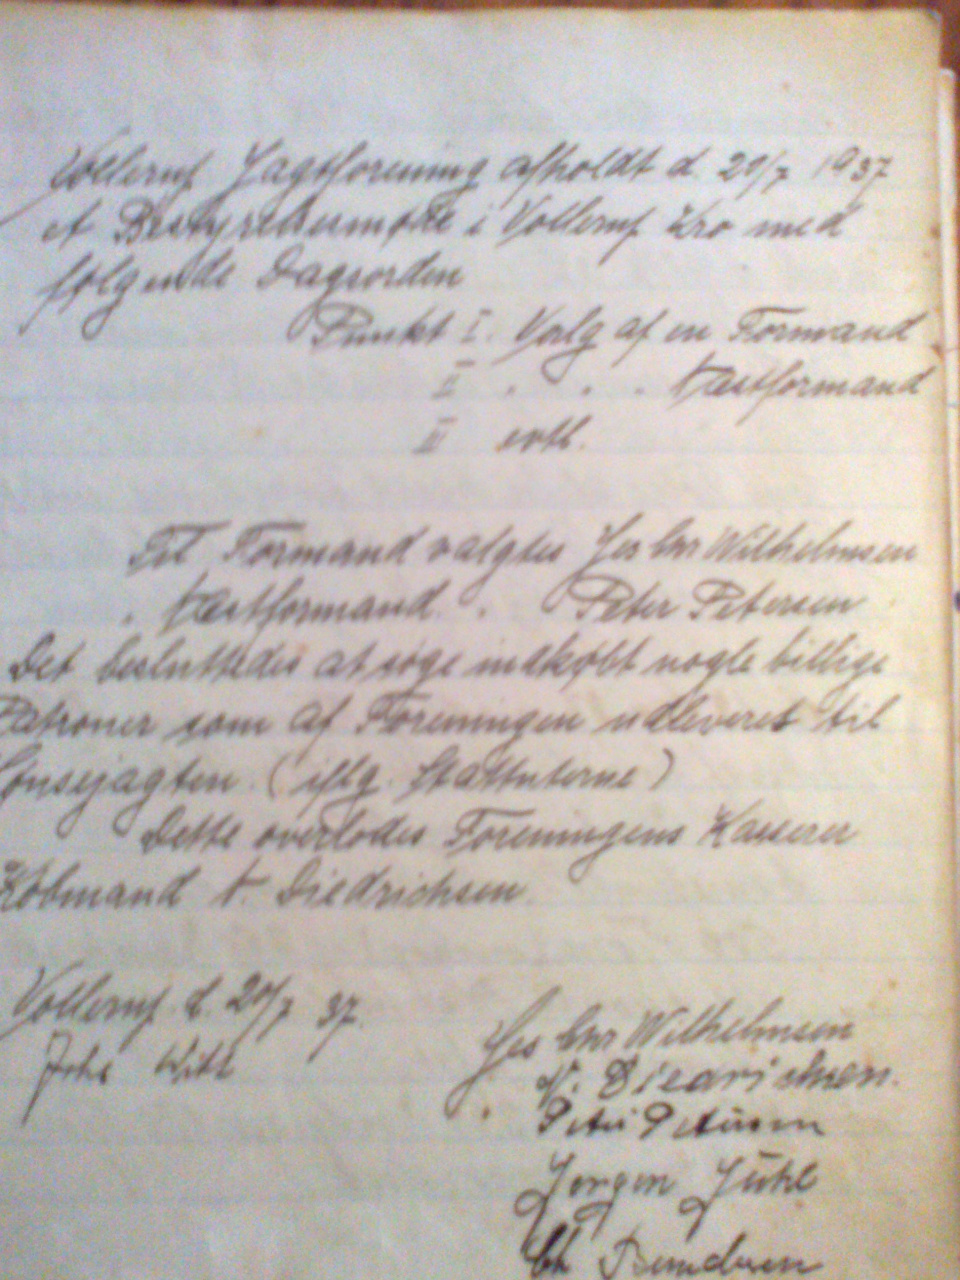 Vollerup Jagtforening afholdt d. 20/7 1937
et Bestyrelsesmøde i Vollerup Kro med
følgende Dagsorden
Punkt I. Valg af en Formand
II . . . Næstformand
III evtl.
Til Formand valgtes Jes Chr Wilhelmsen
. Næstformand . Peter Petersen
Det besluttedes at søge indkøbt nogle billige
Patroner som af Foreningen udleveret til
(iflg. Stattuterne)
Dette overlodes Foreningens Kasserer
Købmand N. Diedrichsen.
Vollerup d. 20/7 37.
Johs Witt
Jes Chr Wilhelmsen
N. Diedrichsen.
Peter Petersen
Jørgen Juhl
Ch